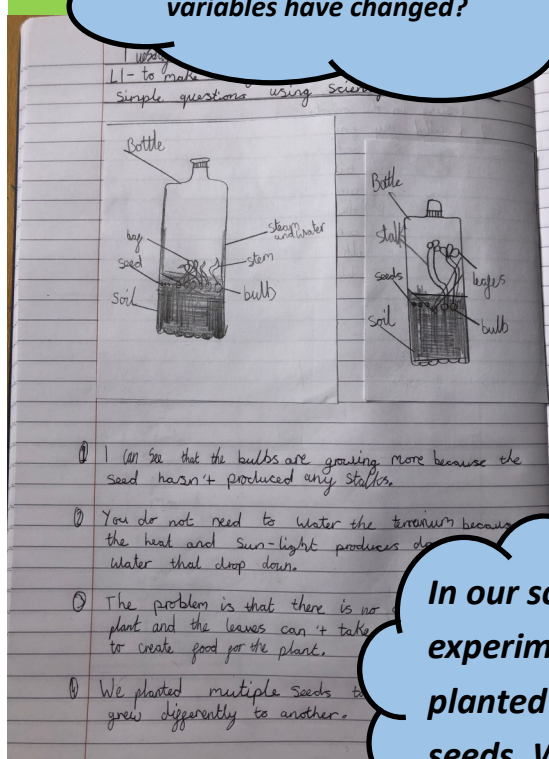 variables have changed?
LI- to make
Simple questions using scien
Bottle
bag
seed
Soil
steam and water
stem
bulb
Bottle
stalk
seeds
Soil
leafes
bulb
① I can see that the bulbs are growing more because the
seed hasn't produced any stalks.
② You do not need to water the terranium becaus
the heat and Sun-light produces
water that drop down.
③ The problem is that there is no
plant and the leaves can't take
to create food for the plant.
④ We planted mutiple seeds to
grew differently to another.
In our sc
experim
planted
seeds. W